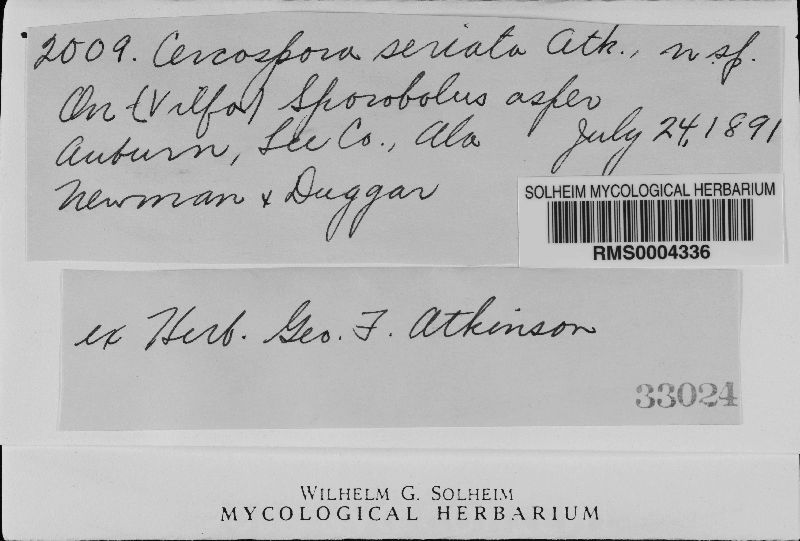 2009. Cercospora seriata Atk., n.sp.
On (Vilfa) Sporobolus asper
Auburn, Lee Co., Ala July 24, 1891
Newman & Duggar
SOLHEIM MYCOLOGICAL HERBARIUM
RMS0004336
ex Herb. Geo. F. Atkinson
33024
WILHELM G. SOLHEIM
MYCOLOGICAL HERBARIUM